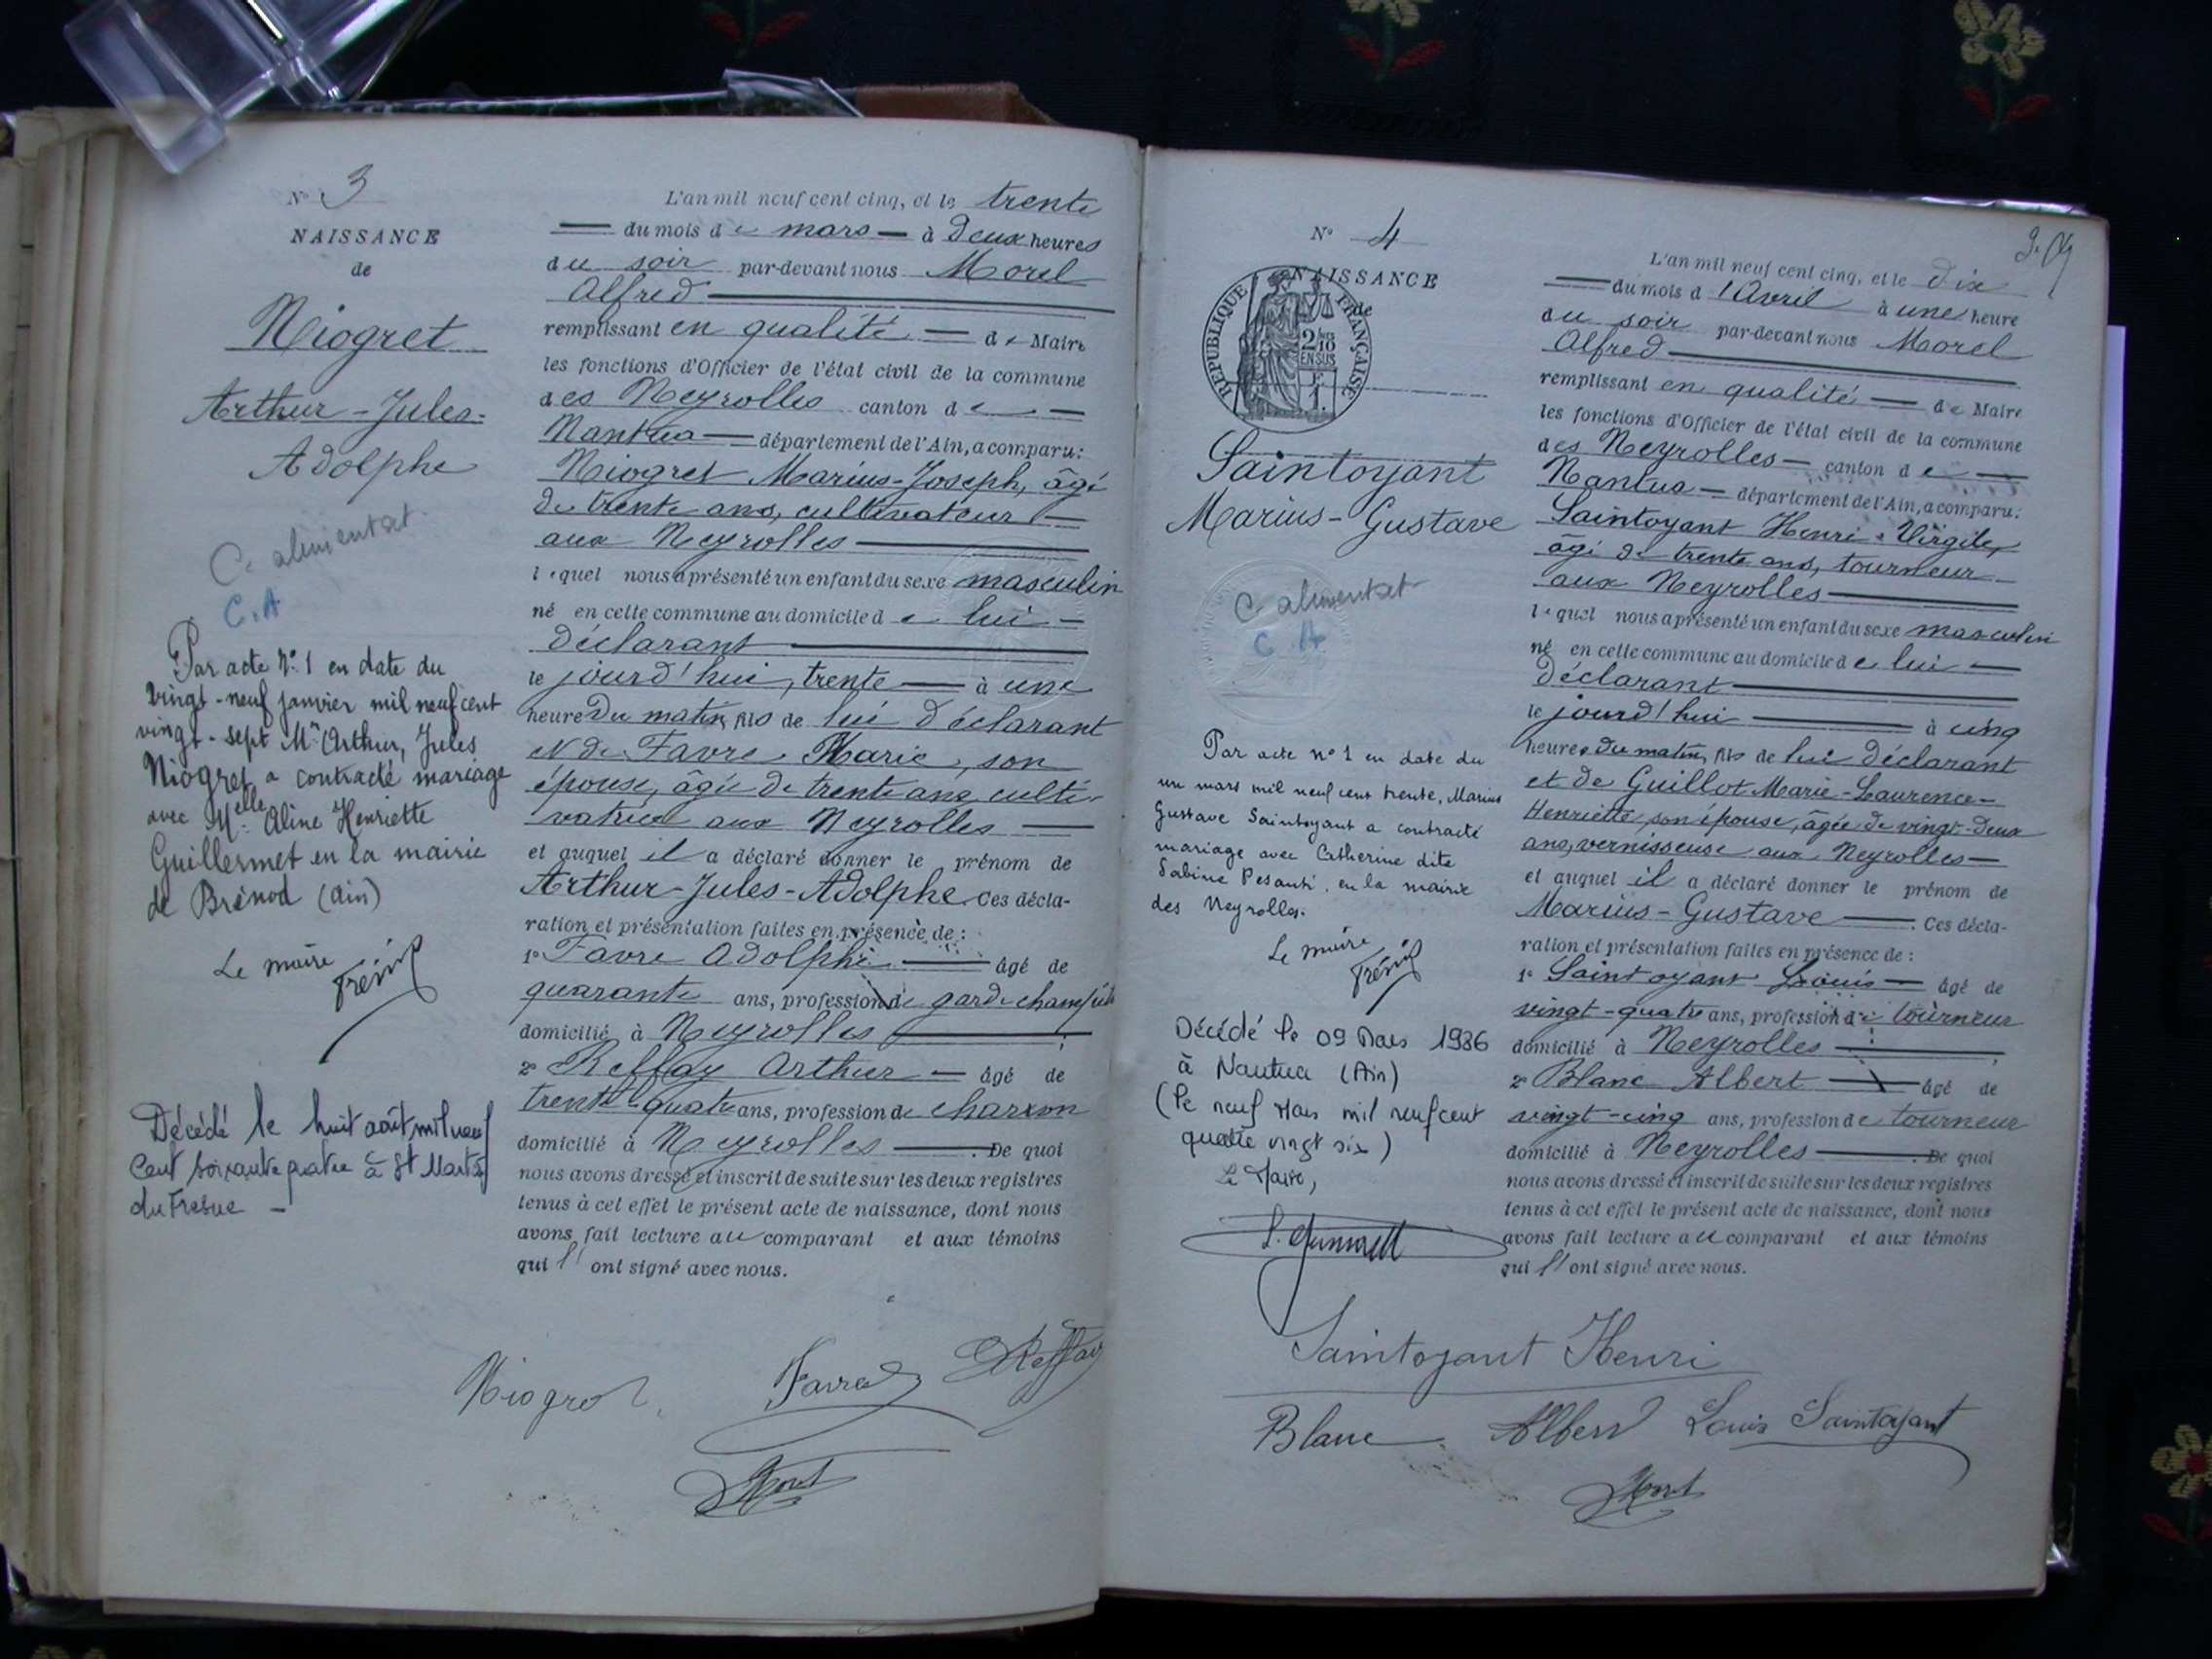 N° 3
NAISSANCE
de
Niogret
Arthur-Jules-
Adolphe
C. alimentat
C.A
Par acte N°.1 en date du
vingt-neuf janvier mil neuf cent
vingt-sept Mr Arthur, Jules
Niogret a contracté mariage
avec Melle Aline Henriette
Guillermet en la mairie
de Brénod (Ain)
Le maire
Décédé le huit août mil neuf
cent soixante quatre à St Martin
du Fresne -
L'an mil neuf cent cinq, et le trente
— du mois de mars — à deux heures
du soir par-devant nous Morel
Alfred —
remplissant en qualité — de Maire
les fonctions d'Officier de l'état civil de la commune
des Neyrolles canton de —
Nantua — département de l'Ain, a comparu:
Niogret Marius-Joseph, âgé
de trente ans, cultivateur —
aux Neyrolles —
lequel nous a présenté un enfant du sexe masculin
né en cette commune au domicile de lui —
déclarant —
le jourd'hui, trente — à une
heure du matin, fils de lui déclarant
et de Favre Marie, son
épouse, âgée de trente ans, culti-
vatrice aux Neyrolles —
et auquel il a déclaré donner le prénom de
Arthur-Jules-Adolphe. Ces décla-
ration et présentation faites en présence de :
1° Favre Adolphe — âgé de
quarante ans, profession de garde champêtre
domicilié à Neyrolles — ;
2° Reffay Arthur — âgé de
trente-quatre ans, profession de charron
domicilié à Neyrolles —. De quoi
nous avons dressé et inscrit de suite sur les deux registres
tenus à cet effet le présent acte de naissance, dont nous
avons fait lecture au comparant et aux témoins
qui l' ont signé avec nous.
Niogret Favre Reffay
N° 4
NAISSANCE
de
RÉPUBLIQUE FRANÇAISE
2/10
EN SUS
Saintoyant
Marius-Gustave
C. alimentat
C A
Par acte n° 1 en date du
un mars mil neuf cent trente, Marius
Gustave Saintoyant a contracté
mariage avec Catherine dite
Sabine Pesanti, en la mairie
des Neyrolles.
Le maire
Décédé le 09 Mars 1986
à Nantua (Ain)
(le neuf Mars mil neuf cent
quatre vingt six)
Le Maire,
L'an mil neuf cent cinq, et le dix
— du mois d'Avril à une heure
du soir par-devant nous Morel
Alfred —
remplissant en qualité — de Maire
les fonctions d'Officier de l'état civil de la commune
des Neyrolles — canton de —
Nantua — département de l'Ain, a comparu:
Saintoyant Henri-Virgile,
âgé de trente ans, tourneur —
aux Neyrolles —
lequel nous a présenté un enfant du sexe masculin
né en cette commune au domicile de lui —
déclarant —
le jourd'hui — à cinq
heures du matin, fils de lui déclarant
et de Guillot Marie-Laurence-
Henriette, son épouse, âgée de vingt-deux
ans, vernisseuse aux Neyrolles —
et auquel il a déclaré donner le prénom de
Marius-Gustave —. Ces décla-
ration et présentation faites en présence de :
1° Saintoyant Louis — âgé de
vingt-quatre ans, profession de tourneur
domicilié à Neyrolles — ;
2° Blanc Albert — âgé de
vingt-cinq ans, profession de tourneur
domicilié à Neyrolles —. De quoi
nous avons dressé et inscrit de suite sur les deux registres
tenus à cet effet le présent acte de naissance, dont nous
avons fait lecture au comparant et aux témoins
qui l' ont signé avec nous.
Saintoyant Henri
Blanc Albert Louis Saintoyant